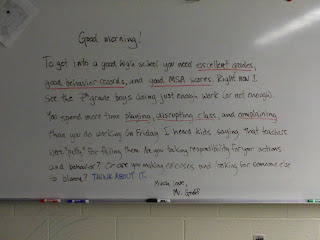 Good morning!
To get into a good high school you need excellent grades,
good behavior records, and good MSA scores. Right now I
see the 7th grade boys doing just enough work (or not enough).
You spend more time playing, disrupting class, and complaining
than you do working. On Friday I heard kids saying that teachers
were "petty" for failing them. Are you taking responsibility for your actions
and behavior? Or are you making excuses and looking for someone else
to blame? THINK ABOUT IT.
Much love,
Mr.